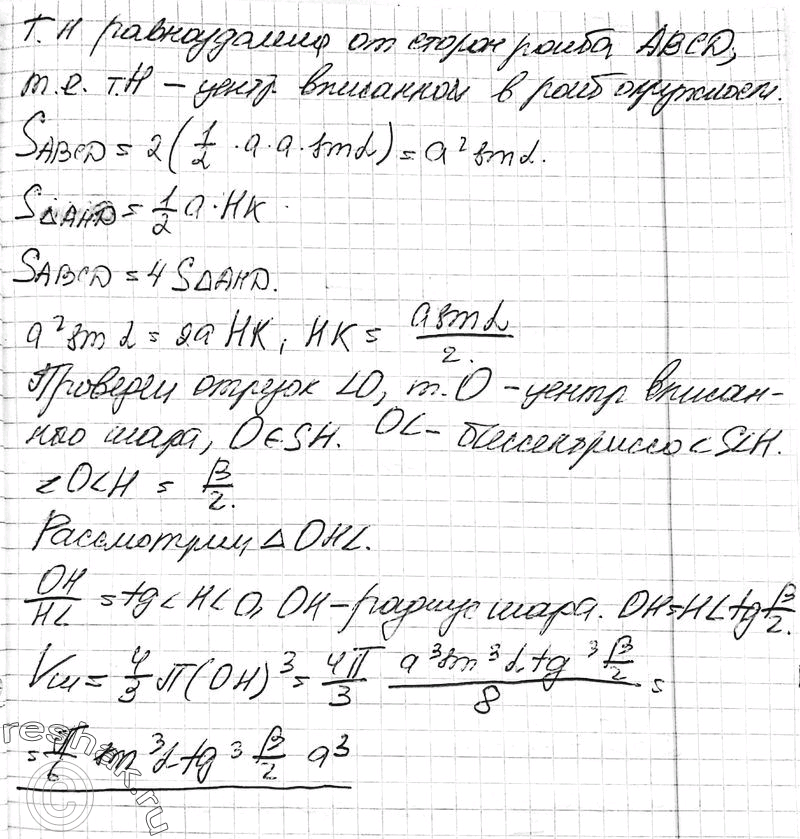 т. H равноудалена от сторон ромба ABCD,
т.е. т.H – центр вписанной в ромб окружности.
S_ABCD = 2(1/2 · a · a · sin α) = a² sin α.
S_△AHD = 1/2 a · HK
S_ABCD = 4 S△AHD.
a² sin α = 2a HK, HK = a sin α / 2.
Проведем отрезок LO, т. O – центр вписан-
ного шара, O ∈ SH. OL – биссектрисса ∠SLH.
∠OLH = β/2.
Рассмотрим △OHL.
OH/HL = tg ∠HLO, OH – радиус шара. OH = HL tg β/2.
Vш = 4/3 π(OH)³ = 4π/3 a³ sin³ α · tg³ β/2 / 8 =
= π/6 sin³ α · tg³ β/2 a³
© reshak.ru